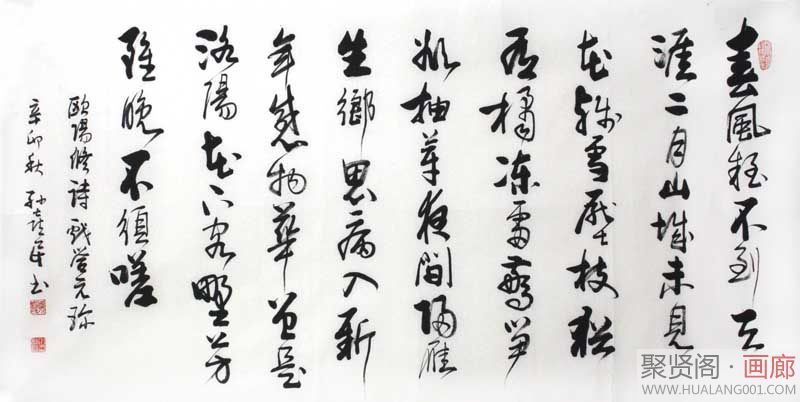 春風疑不到天
涯二月山城未見
花殘雪壓枝猶
有橘凍雷驚笋
欲抽芽夜聞歸雁
生鄉思病入新
年感物華曾是
洛陽花下客野芳
雖晚不須嗟
歐陽修詩戲答元珍
辛卯秋 孫書
聚贤阁·画廊
WWW.HUALANG001.COM